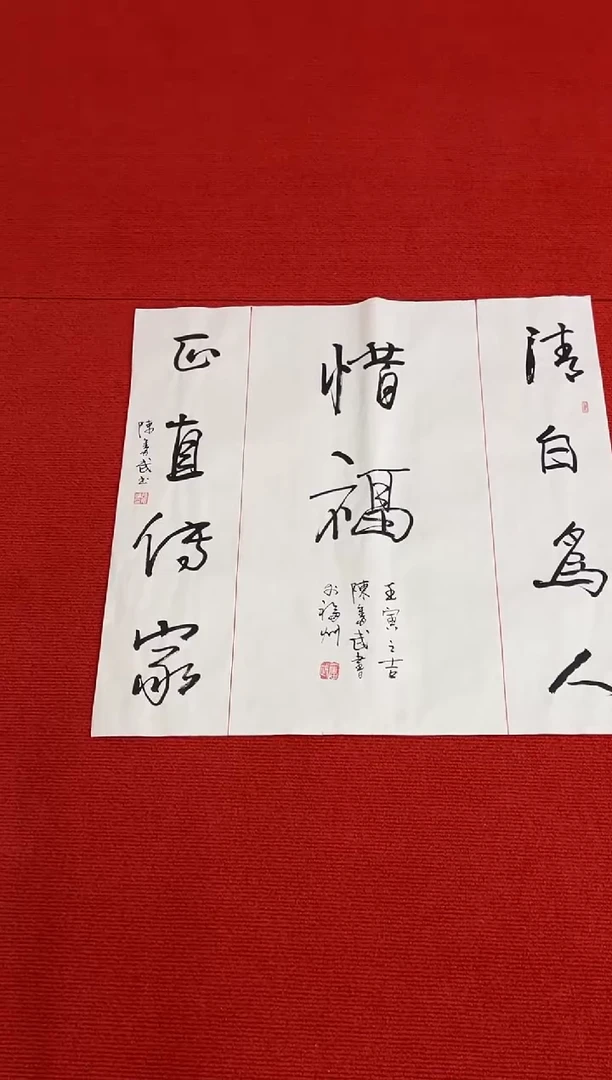 清白為人
惜福
壬寅之吉
陳秀武書
於福州
正直傳家
陳秀武书